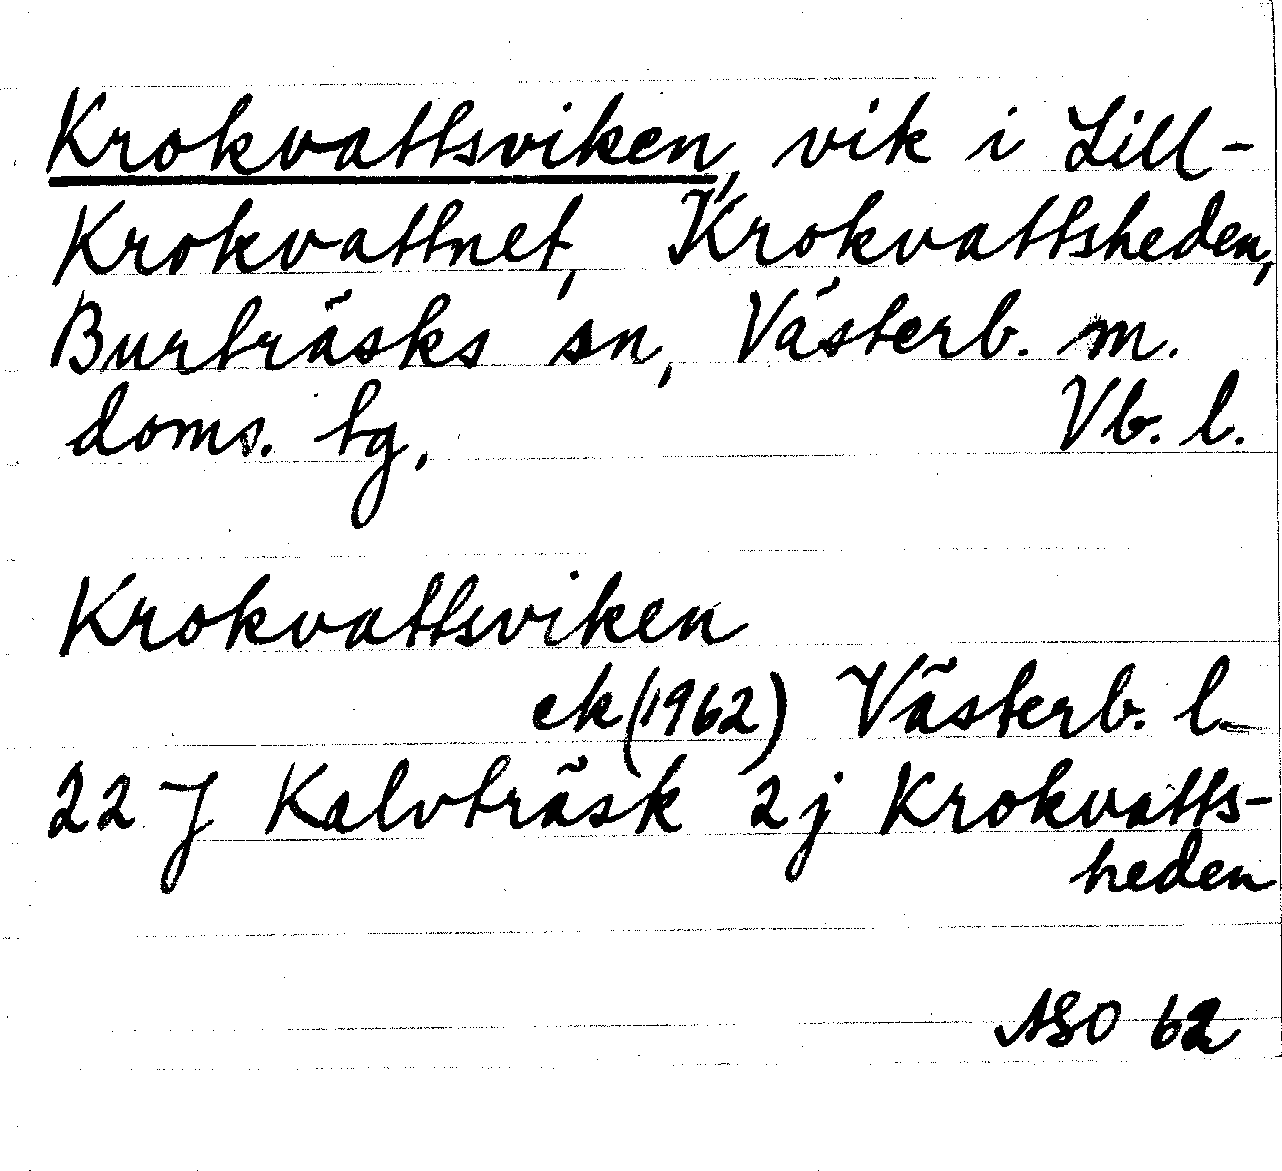 Krokvattsviken, vik i Lill-
Krokvattnet, Krokvattsheden,
Burträsks sn, Västerb. m.
doms. tg, Vb. l.
Krokvattsviken
ek (1962) Västerb. l
22 J Kalvträsk 2j Krokvatts-
heden
ASO 62